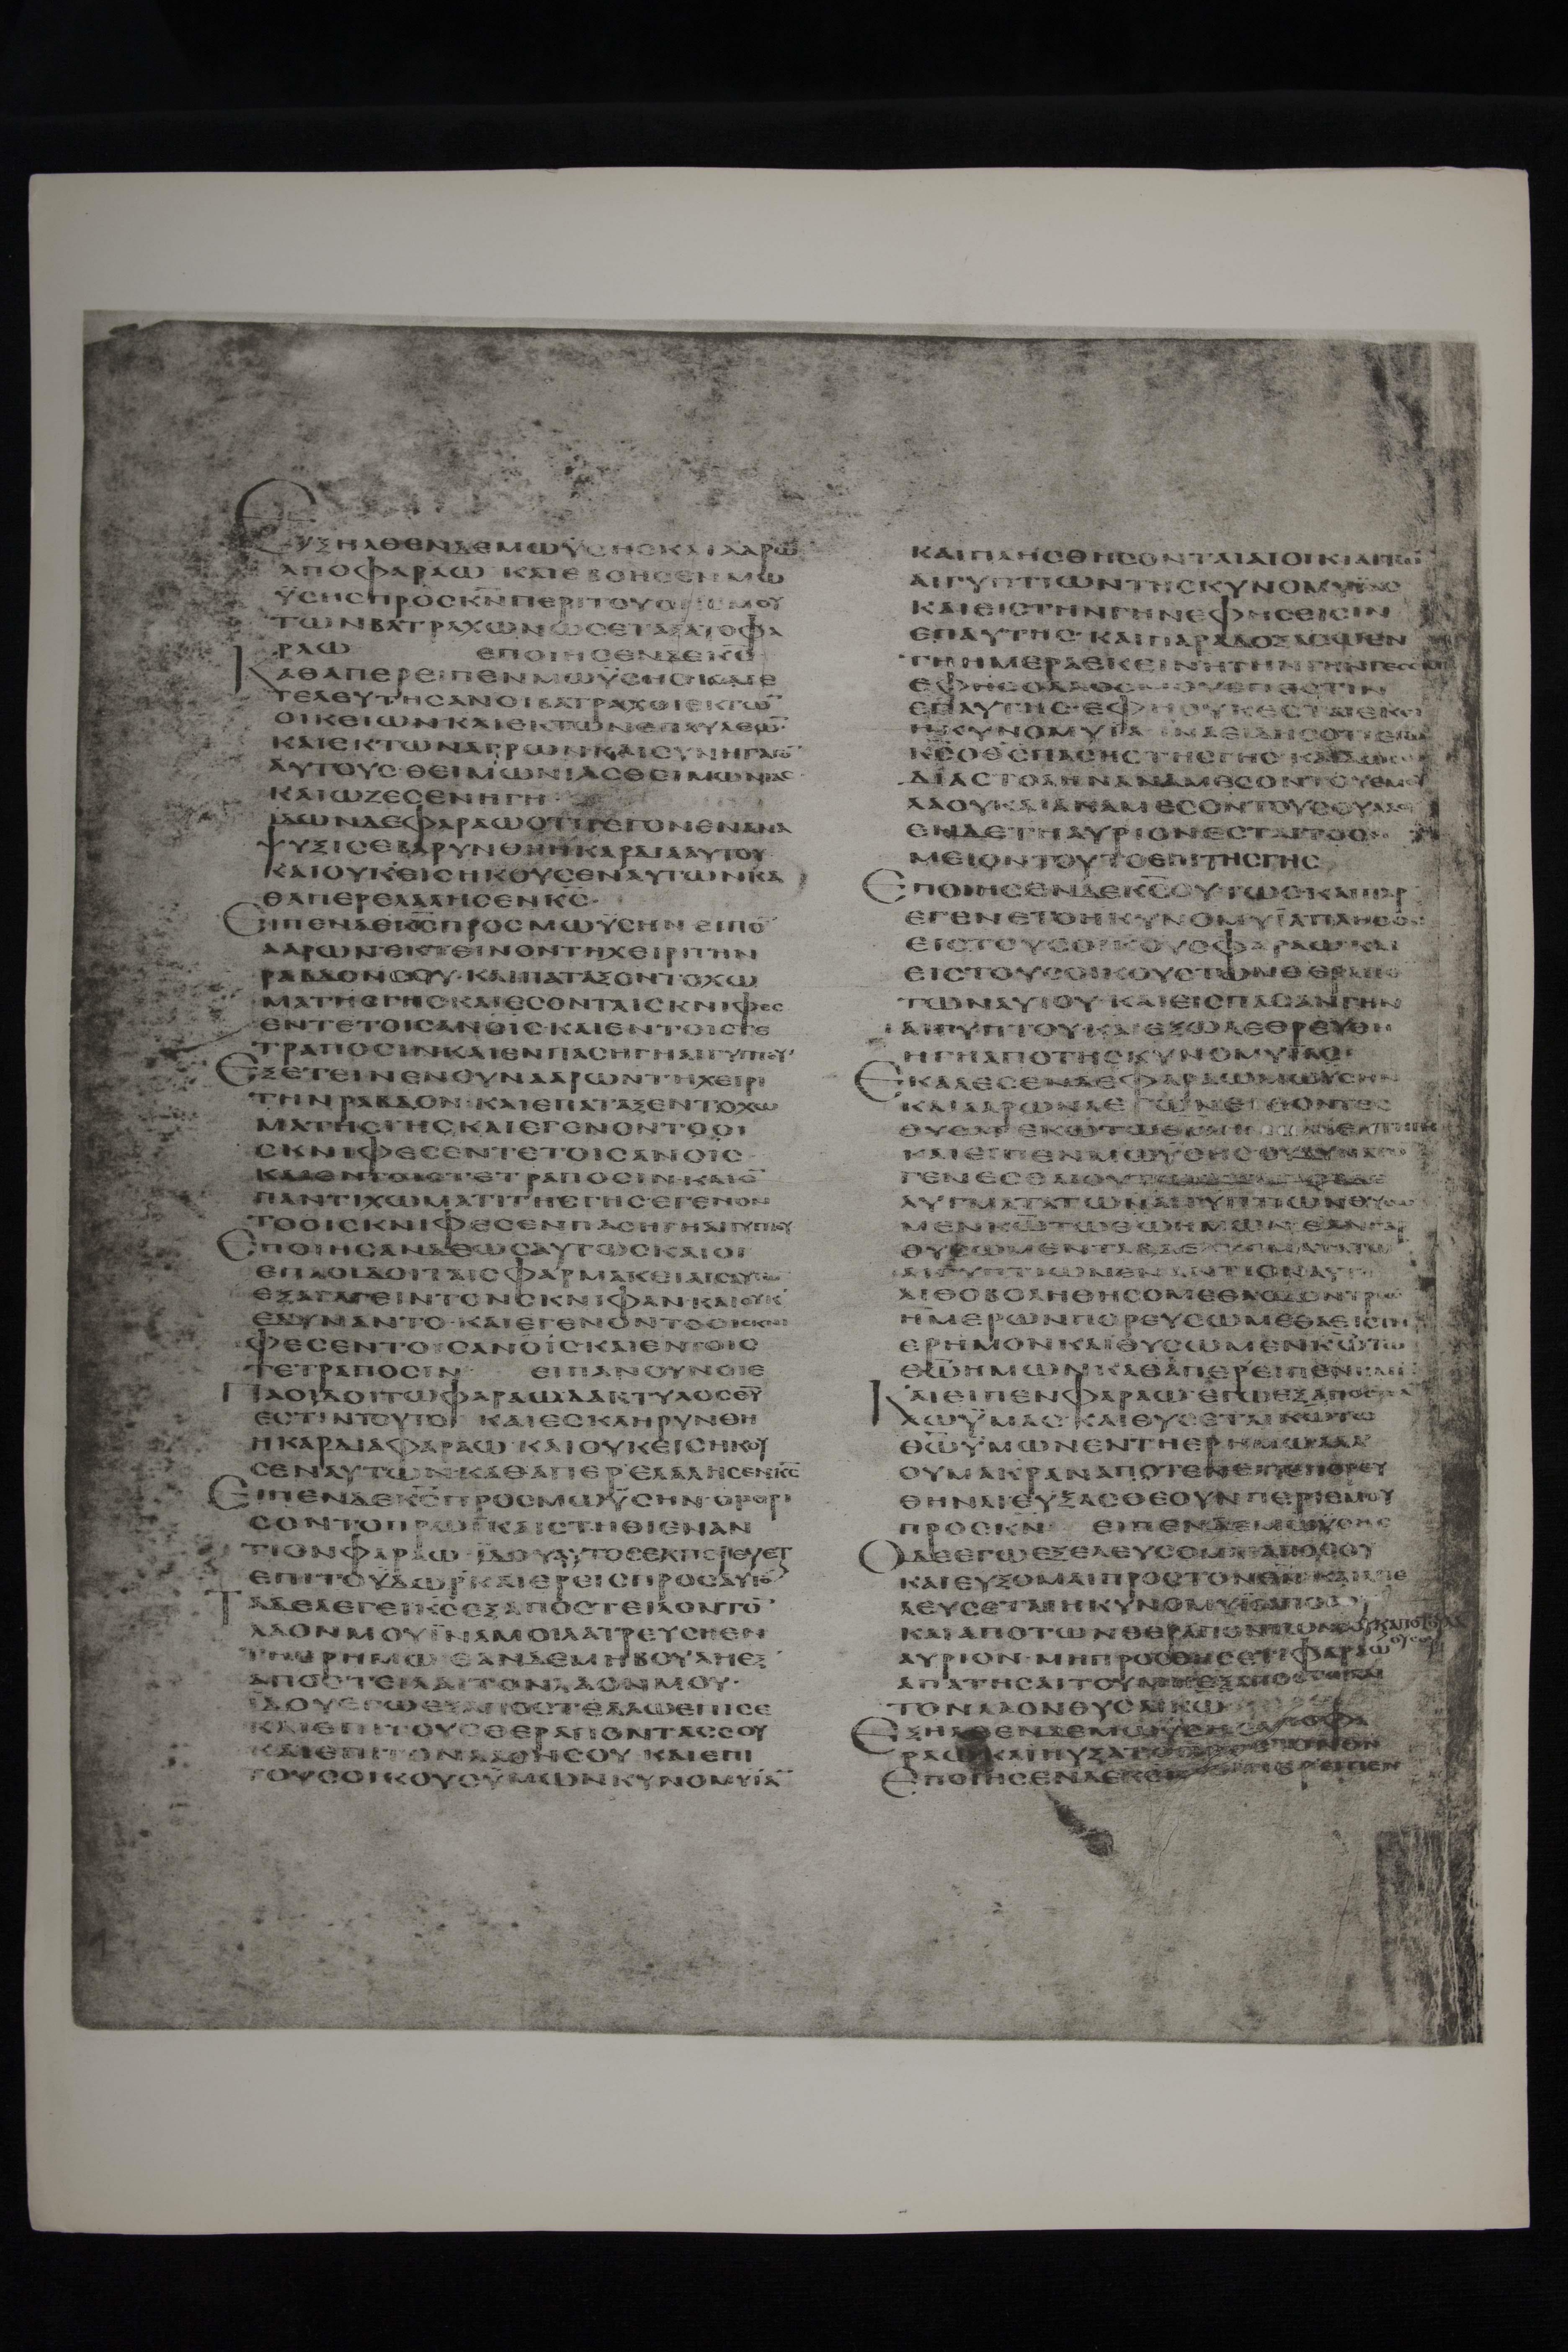 ΕΞΗΛΘΕΝΔΕΜΩΫΣΗΣΚΑΙΑΑΡΩ̅
ΑΠΟΦΑΡΑΩ ΚΑΙΕΒΟΗΣΕΝΜΩ
ΫΣΗΣΠΡΟΣΚ̅Ν̅ΠΕΡΙΤΟΥΟΡΙΣΜΟΥ
ΤΩΝΒΑΤΡΑΧΩΝΩΣΕΤΑΞΑΤΟΦΑ
ΡΑΩ ΕΠΟΙΗΣΕΝΔΕΚ̅Σ̅
ΚΑΘΑΠΕΡΕΙΠΕΝΜΩΫΣΗΣΚΑΙΕ
ΤΕΛΕΥΤΗΣΑΝΟΙΒΑΤΡΑΧΟΙΕΚΤΩ̅
ΟΙΚΕΙΩΝΚΑΙΕΚΤΩΝΕΠΑΥΛΕΩ̅
ΚΑΙΕΚΤΩΝΑΓΡΩΝΚΑΙΣΥΝΗΓΑΓΟ̅
ΑΥΤΟΥΣ·ΘΕΙΜΩΝΙΑΣΘΕΙΜΩΝΙΑΣ
ΚΑΙΩΖΕΣΕΝΗΓΗ
ΙΔΩΝΔΕΦΑΡΑΩΟΤΙΓΕΓΟΝΕΝΑΝΑ
ΨΥΞΙΣΕΒΑΡΥΝΘΗΗΚΑΡΔΙΑΑΥΤΟΥ
ΚΑΙΟΥΚΕΙΣΗΚΟΥΣΕΝΑΥΤΩΝΚΑ
ΘΑΠΕΡΕΛΑΛΗΣΕΝΚ̅Σ̅·
ΕΙΠΕΝΔΕΚ̅Σ̅ΠΡΟΣΜΩΫΣΗΝ ΕΙΠΟ̅
ΑΑΡΩΝΕΚΤΕΙΝΟΝΤΗΧΕΙΡΙΤΗΝ
ΡΑΒΔΟΝΣΟΥ·ΚΑΙΠΑΤΑΞΟΝΤΟΧΩ
ΜΑΤΗΣΓΗΣΚΑΙΕΣΟΝΤΑΙΣΚΝΙΦΕΣ
ΕΝΤΕΤΟΙΣΑΝ̅Ο̅Ι̅Σ̅ΚΑΙΕΝΤΟΙΣΤΕ
ΤΡΑΠΟΣΙΝΚΑΙΕΝΠΑΣΗΓΗΑΙΓΥΠΤΟΥ·
ΕΞΕΤΕΙΝΕΝΟΥΝΑΑΡΩΝΤΗΧΕΙΡΙ
ΤΗΝΡΑΒΔΟΝ·ΚΑΙΕΠΑΤΑΞΕΝΤΟΧΩ
ΜΑΤΗΣΓΗΣΚΑΙΕΓΕΝΟΝΤΟΟΙ
ΣΚΝΙΦΕΣΕΝΤΕΤΟΙΣΑΝ̅Ο̅Ι̅Σ̅
ΚΑΙΕΝΤΟΙΣΤΕΤΡΑΠΟΣΙΝΚΑΙΕ̅
ΠΑΝΤΙΧΩΜΑΤΙΤΗΣΓΗΣΕΓΕΝΟΝ
ΤΟΟΙΣΚΝΙΦΕΣΕΝΠΑΣΗΓΗΑΙΓΥΠΤΟΥ
ΕΠΟΙΗΣΑΝΔΕΩΣΑΥΤΩΣΚΑΙΟΙ
ΕΠΑΟΙΔΟΙΤΑΙΣΦΑΡΜΑΚΕΙΑΙΣΑΥΤΩ̅
ΕΞΑΓΑΓΕΙΝΤΟΝΣΚΝΙΦΑΝΚΑΙΟΥΚ
ΕΔΥΝΑΝΤΟ·ΚΑΙΕΓΕΝΟΝΤΟΟΙΣΚΝΙ
ΦΕΣΕΝΤΟΙΣΑΝ̅Ο̅Ι̅Σ̅ΚΑΙΕΝΤΟΙΣ
ΤΕΤΡΑΠΟΣΙΝ ΕΙΠΑΝΟΥΝΟΙΕ
ΠΑΟΙΔΟΙΤΩΦΑΡΑΩΔΑΚΤΥΛΟΣΘ̅Υ̅
ΕΣΤΙΝΤΟΥΤΟ· ΚΑΙΕΣΚΛΗΡΥΝΘΗ
ΗΚΑΡΔΙΑΦΑΡΑΩ·ΚΑΙΟΥΚΕΙΣΗΚΟΥ
ΣΕΝΑΥΤΩΝ·ΚΑΘΑΠΕΡΕΛΑΛΗΣΕΝΚ̅Σ̅
ΕΙΠΕΝΔΕΚ̅Σ̅ΠΡΟΣΜΩΫΣΗΝ·ΟΡΘΡΙ
ΣΟΝΤΟΠΡΩΪΚΑΙΣΤΗΘΙΕΝΑΝ
ΤΙΟΝΦΑΡΑΩ·ΪΔΟΥΑΥΤΟΣΕΚΠΟΡΕΥΕΤ
ΕΠΙΤΟΫΔΩΡ·ΚΑΙΕΡΕΙΣΠΡΟΣΑΥΤΟ̅
ΤΑΔΕΛΕΓΕΙΚ̅Σ̅ΕΞΑΠΟΣΤΕΙΛΟΝΤΟ̅
ΛΑΟΝΜΟΥΪΝΑΜΟΙΛΑΤΡΕΥΣΗΕΝ
ΤΗΕΡΗΜΩ ΕΑΝΔΕΜΗΒΟΥΛΗΕΞ
ΑΠΟΣΤΕΙΛΑΙΤΟΝΛΑΟΝΜΟΥ·
ΪΔΟΥΕΓΩΕΞΑΠΟΣΤΕΛΛΩΕΠΙΣΕ
ΚΑΙΕΠΙΤΟΥΣΘΕΡΑΠΟΝΤΑΣΣΟΥ
ΚΑΙΕΠΙΤΟΝΛΑΟΝΣΟΥ·ΚΑΙΕΠΙ
ΤΟΥΣΟΙΚΟΥΣΫΜΩΝΚΥΝΟΜΥΙΑ̅
ΚΑΙΠΛΗΣΘΗΣΟΝΤΑΙΑΙΟΙΚΙΑΙΤΩ̅
ΑΙΓΥΠΤΙΩΝΤΗΣΚΥΝΟΜΥΪΑΣ
ΚΑΙΕΙΣΤΗΝΓΗΝΕΦΗΣΕΙΣΙΝ
ΕΠΑΥΤΗΣ·ΚΑΙΠΑΡΑΔΟΞΑΣΩΕΝ
ΤΗΗΜΕΡΑΕΚΕΙΝΗΤΗΝΓΗΝΓΕΣΕΜ
ΕΦΗΣΟΛΑΟΣΜΟΥΕΠΕΣΤΙΝ
ΕΠΑΥΤΗΣ·ΕΦΗΣΟΥΚΕΣΤΑΙΕΚΕΙ
ΗΚΥΝΟΜΥΪΑ ΪΝΑΕΙΔΗΣΟΤΙΕΓΩ
Κ̅Σ̅Ο̅Θ̅Σ̅ΠΑΣΗΣΤΗΣΓΗΣ ΚΑΙΔΩΣΩ
ΔΙΑΣΤΟΛΗΝΑΝΑΜΕΣΟΝΤΟΥΕΜΟΥ
ΛΑΟΥΚΑΙΑΝΑΜΕΣΟΝΤΟΥΣΟΥΛΑΟΥ
ΕΝΔΕΤΗΑΥΡΙΟΝΕΣΤΑΙΤΟΣΗ
ΜΕΙΟΝΤΟΥΤΟΕΠΙΤΗΣΓΗΣ
ΕΠΟΙΗΣΕΝΔΕΚ̅Σ̅ΟΥΤΩΣΚΑΙΠΑΡ
ΕΓΕΝΕΤΟΗΚΥΝΟΜΥΪΑΠΛΗΘΟΣ
ΕΙΣΤΟΥΣΟΙΚΟΥΣΦΑΡΑΩΚΑΙ
ΕΙΣΤΟΥΣΟΙΚΟΥΣΤΩΝΘΕΡΑΠΟ
ΤΩΝΑΥΤΟΥ·ΚΑΙΕΙΣΠΑΣΑΝΓΗΝ
ΑΙΓΥΠΤΟΥ·ΚΑΙΕΞΩΛΕΘΡΕΥΘΗ
ΗΓΗΑΠΟΤΗΣΚΥΝΟΜΥΪΑΣ·
ΕΚΑΛΕΣΕΝΔΕΦΑΡΑΩΜΩΫΣΗΝ
ΚΑΙΑΑΡΩΝΛΕΓΩΝΕΛΘΟΝΤΕΣ
ΘΥΣΑΤΕΚ̅Ω̅ΤΩΘ̅Ω̅
ΚΑΙΕΙΠΕΝΜΩΫΣΗΣΟΥΔΥΝΑΤΟ̅
ΓΕΝΕΣΘΑΙΟΥΤΩΣ
ΛΥΓΜΑΤΑΤΩΝΑΙΓΥΠΤΙΩΝΘΥΣΟ
ΜΕΝΚ̅Ω̅ΤΩΘ̅Ω̅ΗΜΩΝΕΑΝΓΑΡ
ΘΥΣΩΜΕΝΤΑΒΔΕΛΥΓΜΑΤΑΤΩ̅
ΑΙΓΥΠΤΙΩΝΕΝΑΝΤΙΟΝΑΥΤΩ̅
ΛΙΘΟΒΟΛΗΘΗΣΟΜΕΘΑΟΔΟΝΤΡΙΩ̅
ΗΜΕΡΩΝΠΟΡΕΥΣΩΜΕΘΑΕΙΣΤΗ̅
ΕΡΗΜΟΝΚΑΙΘΥΣΩΜΕΝΚ̅Ω̅ΤΩ
Θ̅Ω̅ΗΜΩΝΚΑΘΑΠΕΡΕΙΠΕΝΗΜΙ̅
ΚΑΙΕΙΠΕΝΦΑΡΑΩΕΓΩΕΞΑΠΟΣΤΕΛ
ΛΩΫΜΑΣ·ΚΑΙΘΥΣΕΤΑΙΚ̅Ω̅ΤΩ
Θ̅Ω̅ΫΜΩΝΕΝΤΗΕΡΗΜΩΑΛΛ
ΟΥΜΑΚΡΑΝΑΠΟΤΕΝΕΙΤΕΠΟΡΕΥ
ΘΗΝΑΙΕΥΞΑΣΘΕΟΥΝΠΕΡΙΕΜΟΥ
ΠΡΟΣΚ̅Ν̅ ΕΙΠΕΝΔΕΜΩΫΣΗΣ
ΟΔΕΕΓΩΕΞΕΛΕΥΣΟΜΑΙΑΠΟΣΟΥ
ΚΑΙΕΥΞΟΜΑΙΠΡΟΣΤΟΝΘ̅Ν̅ΚΑΙΑΠΕ
ΛΕΥΣΕΤΑΙΗΚΥΝΟΜΥΪΑΑΠΟΣΟΥ
ΚΑΙΑΠΟΤΩΝΘΕΡΑΠΟΝΤΩΝΣΟΥΚΑΠΟΤΟΥΛΑΟΥΣΟΥ
ΑΥΡΙΟΝ·ΜΗΠΡΟΣΘΗΣΕΤΙΦΑΡΑΩ
ΑΠΑΤΗΣΑΙΤΟΥΜΗΕΞΑΠΟΣΤΕΙΛΑΙ
ΤΟΝΛΑΟΝΘΥΣΑΙΚ̅Ω̅
ΕΞΗΛΘΕΝΔΕΜΩΫΣΗΣΑΠΟΦΑ
ΡΑΩΚΑΙΗΥΞΑΤΟΠΡΟΣΤΟΝΘ̅Ν̅
ΕΠΟΙΗΣΕΝΔΕΚ̅Σ̅ΚΑΘΑΠΕΡΕΙΠΕΝ